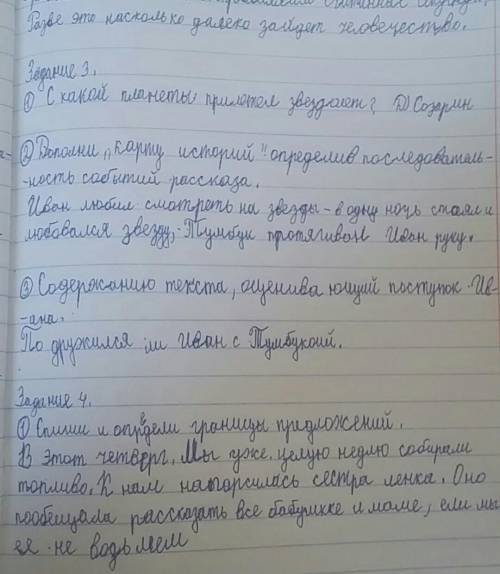 Разве это насколько далеко зайдет человечество.
Задание 3.
① С какой планеты прилетел звездолет? D) Созерин
② Дополни „карту историй" определив последователь-
-ность событий рассказа.
Иван любил смотреть на звезды - в одну ночь стоял и
любовался звезду, - Тумбуи протягивал Иван руку.
③ Содержанию текста, оценивающий поступок Ив-
-ана.
Подружился ли Иван с Тумбукой.
Задание 4.
① Спиши и определи границы предложений.
В этот четверг. Мы уже целую недлю собирали
топливо. К нам напорсилась сестра ленка. Оно
пообещала рассказать все бабушкке и маме, если мы
ея не водьмем